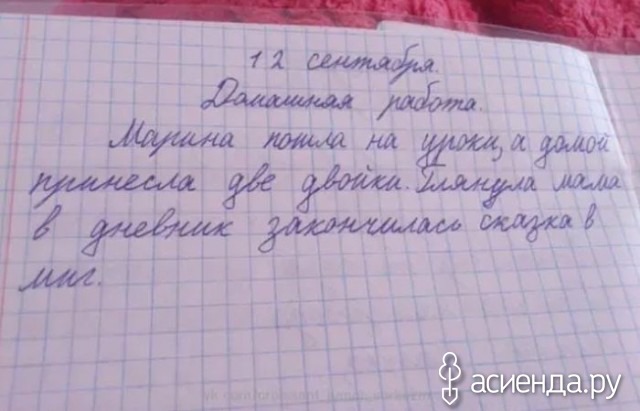 12 сентября.
Домашная работа.
Марина пошла на уроки, а домой
принесла две двойки. Глянула мама
в дневник закончилась сказка в
миг.
асиенда.ру